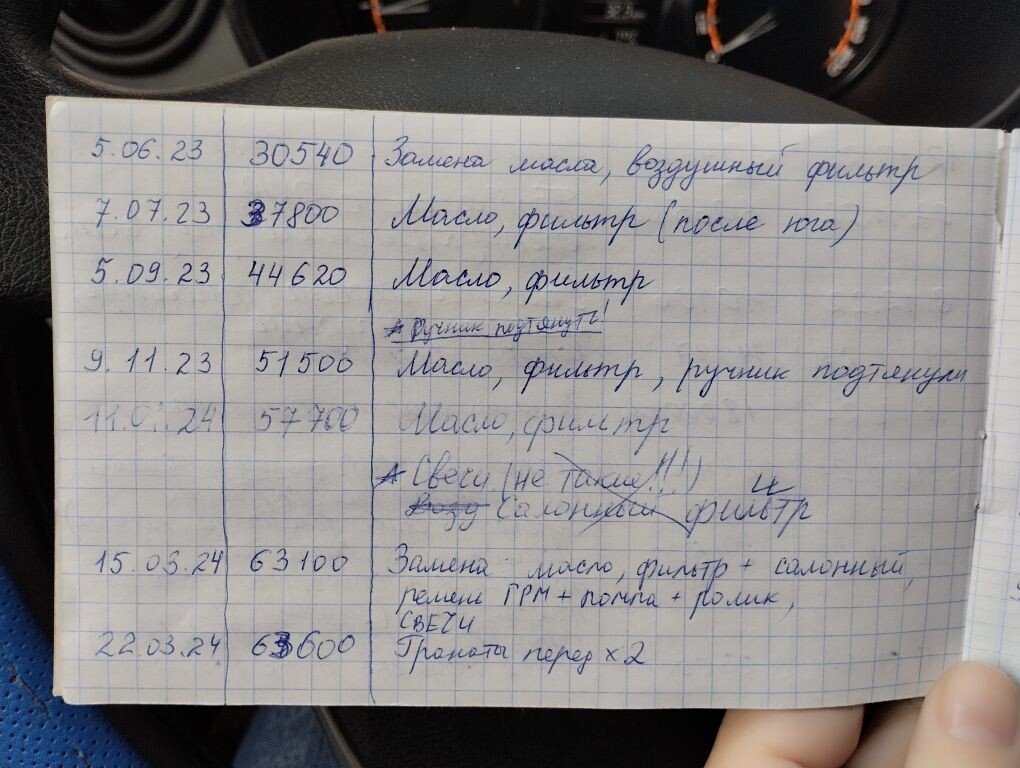 5.06.23 30540 Замена масла, воздушный фильтр
7.07.23 37800 Масло, фильтр (после юга)
5.09.23 44620 Масло, фильтр
* Ручник подтянуть!
9.11.23 51500 Масло, фильтр, ручник подтянули
57700 Масло, фильтр
* Свечи (не такие!!!)
Возд Салонный фильтр
15.03.24 63100 Замена масло, фильтр + салонный,
ремень ГРМ + помпа + ролик,
СВЕЧИ
22.03.24 63600 Гранаты перед x 2